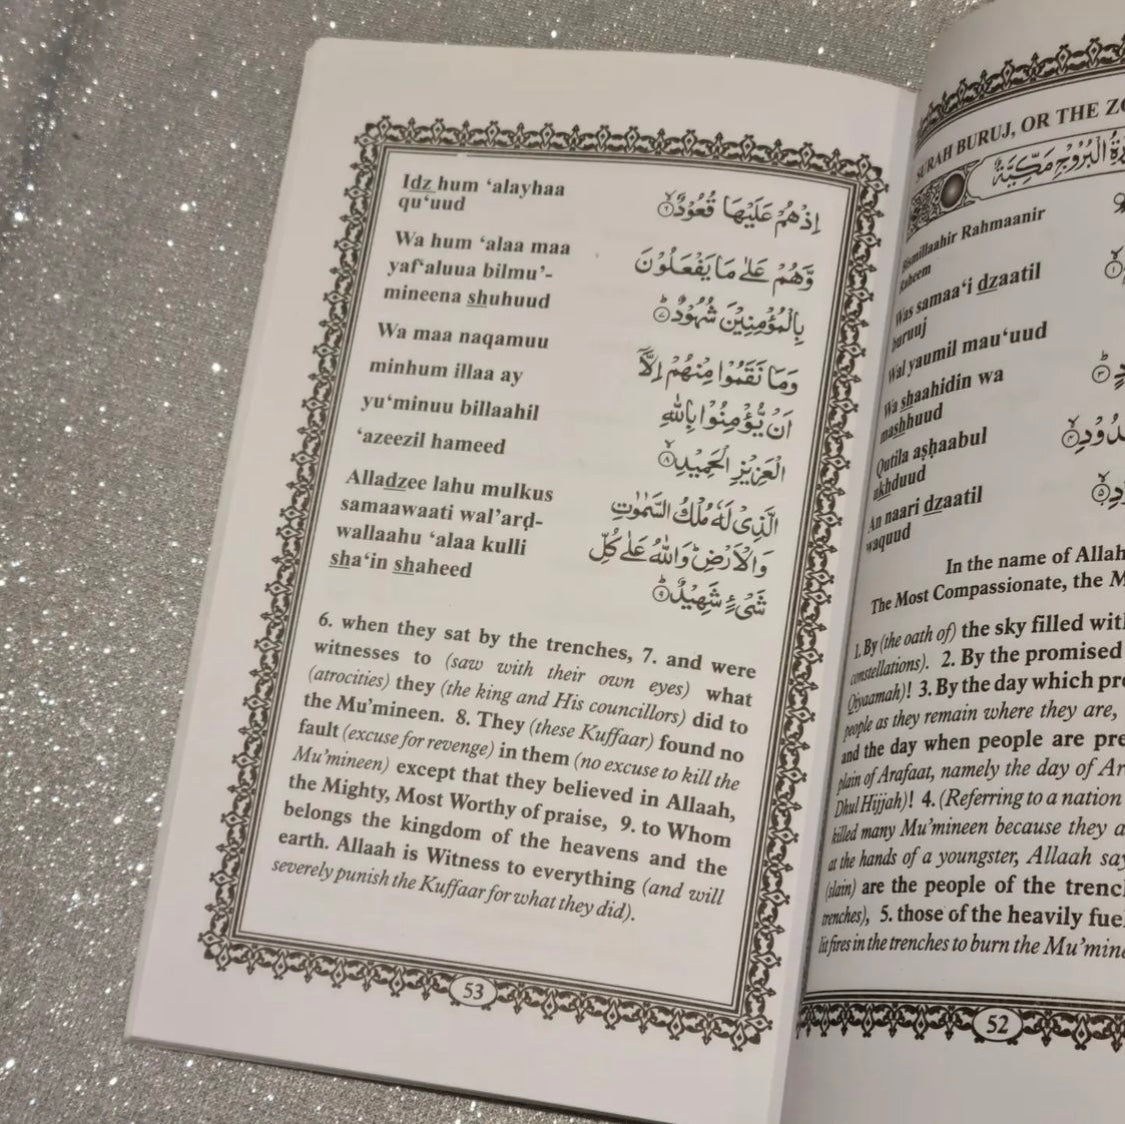 Idz hum ‘alayhaa
qu‘uud
Wa hum ‘alaa maa
yaf‘aluua bilmu’-
mineena shuhuud
Wa maa naqamuu
minhum illaa ay
yu‘minuu billaahil
‘azeezil hameed
Alladzee lahu mulkus
samaawaati wal’arḍ-
wallaahu ‘alaa kulli
sha‘in shaheed
اِذْهُمْ عَلَيْهَا قُعُوْدٌ ۙ﴿٦﴾
وَّهُمْ عَلٰى مَا يَفْعَلُوْنَ
بِالْمُؤْمِنِيْنَ شُهُوْدٌ ؕ﴿٧﴾
وَمَا نَقَمُوْا مِنْهُمْ اِلَّاۤ
اَنْ يُّؤْمِنُوْا بِاللّٰهِ
الْعَزِيْزِ الْحَمِيْدِ ۙ﴿٨﴾
الَّذِىْ لَهٗ مُلْكُ السَّمٰوٰتِ
وَالْاَرْضِ ؕ وَاللّٰهُ عَلٰى كُلِّ
شَىْءٍ شَهِيْدٌ ؕ﴿٩﴾
6. when they sat by the trenches, 7. and were
witnesses to (saw with their own eyes) what
(atrocities) they (the king and His councillors) did to
the Mu’mineen. 8. They (these Kuffaar) found no
fault (excuse for revenge) in them (no excuse to kill the
Mu’mineen) except that they believed in Allaah,
the Mighty, Most Worthy of praise, 9. to Whom
belongs the kingdom of the heavens and the
earth. Allaah is Witness to everything (and will
severely punish the Kuffaar for what they did).
53
SURAH BURUJ, OR THE
الْبُرُوْجِ مَكِّيَّةٌ
Bismillaahir Rahmaanir
Raheem
Was samaa‘i dzaatil
buruuj
Wal yaumil mau‘uud
Wa shaahidin wa
mashhuud
Qutila aṣḥaabul
ukhduud
An naari dzaatil
waquud
In the name of Allah
The Most Compassionate, the
1. By (the oath of) the sky filled with
constellations). 2. By the promised
Qiyaamah)! 3. By the day which
people as they remain where they are,
and the day when people are
plain of Arafaat, namely the day of
Dhul Hijjah)! 4. (Referring to a nation
killed many Mu’mineen because they
at the hands of a youngster, Allaah
(slain) are the people of the
trenches), 5. those of the heavily
lit fires in the trenches to burn the
52